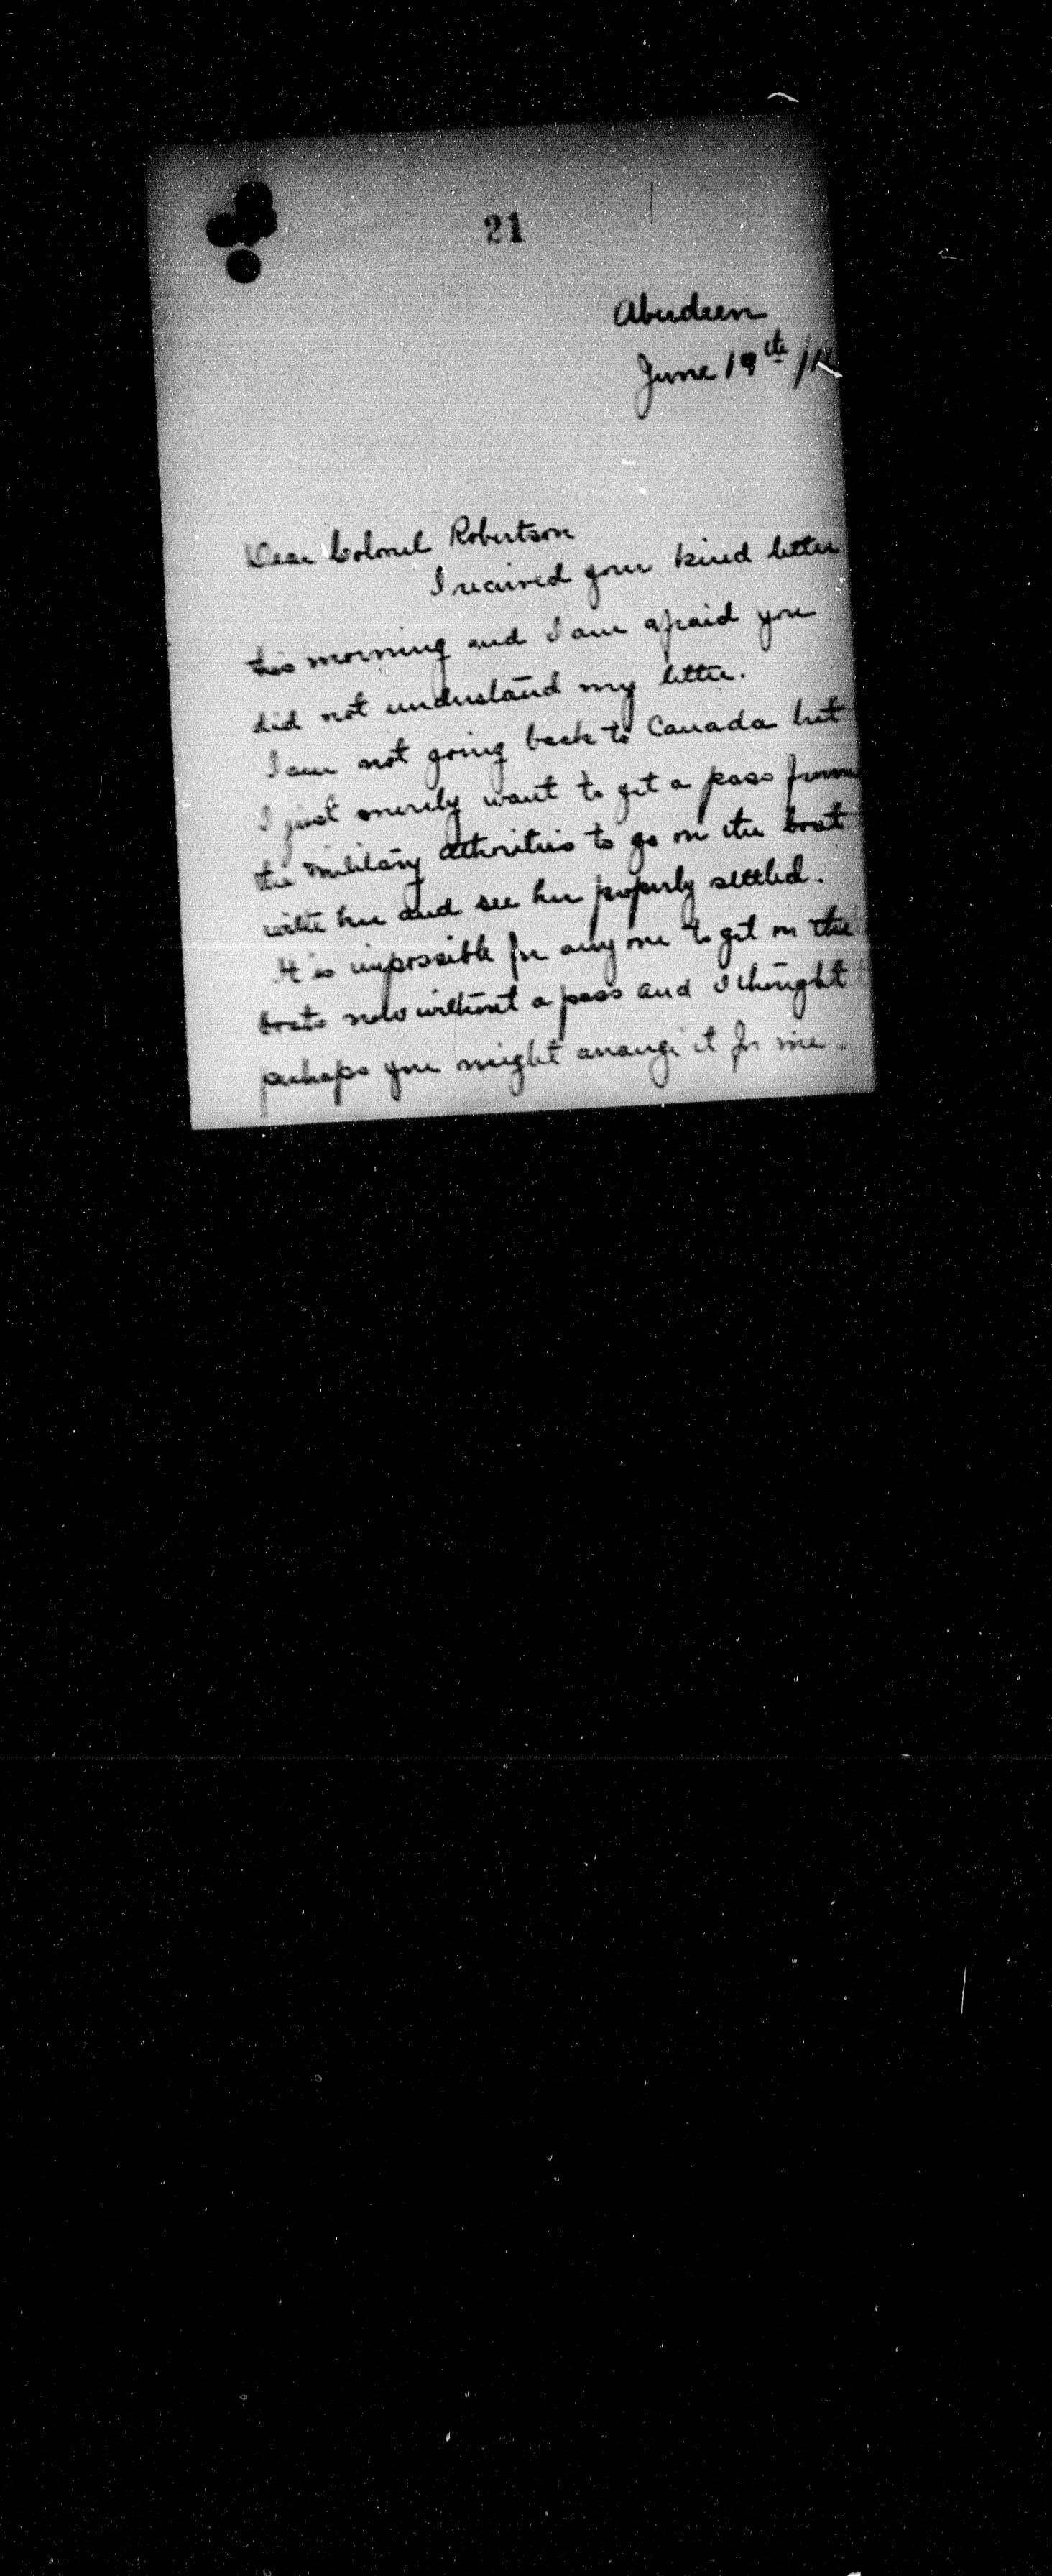 21
Aberdeen
June 19th
Dear Colonel Robertson
I received your kind letter
this morning and I am afraid you
did not understand my letter.
I am not going back to Canada but
I just merely want to get a pass from
the military athorities to go on the boat
with her and see her properly settled.
It is impossible for any one to get on the
boats now without a pass and I thought
perhaps you might arrange it for me.